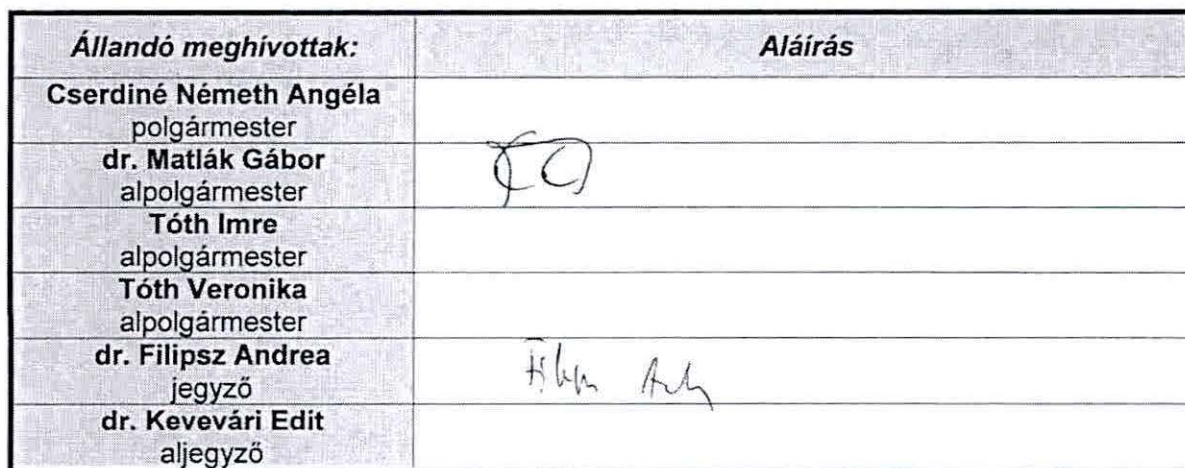 Állandó meghívottak:
Aláírás
Cserdiné Németh Angéla
polgármester
dr. Matlák Gábor
alpolgármester
Tóth Imre
alpolgármester
Tóth Veronika
alpolgármester
dr. Filipsz Andrea
jegyző
dr. Kevevári Edit
aljegyző